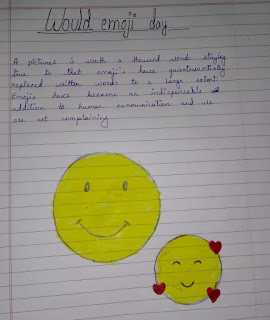 Would emoji day
A pictures is worth a thousand words staying
true to that emoji's have quintessentially
replaced written words to a large extent.
Emojis have became an indispensable
addition to human communication and we
are not complaining